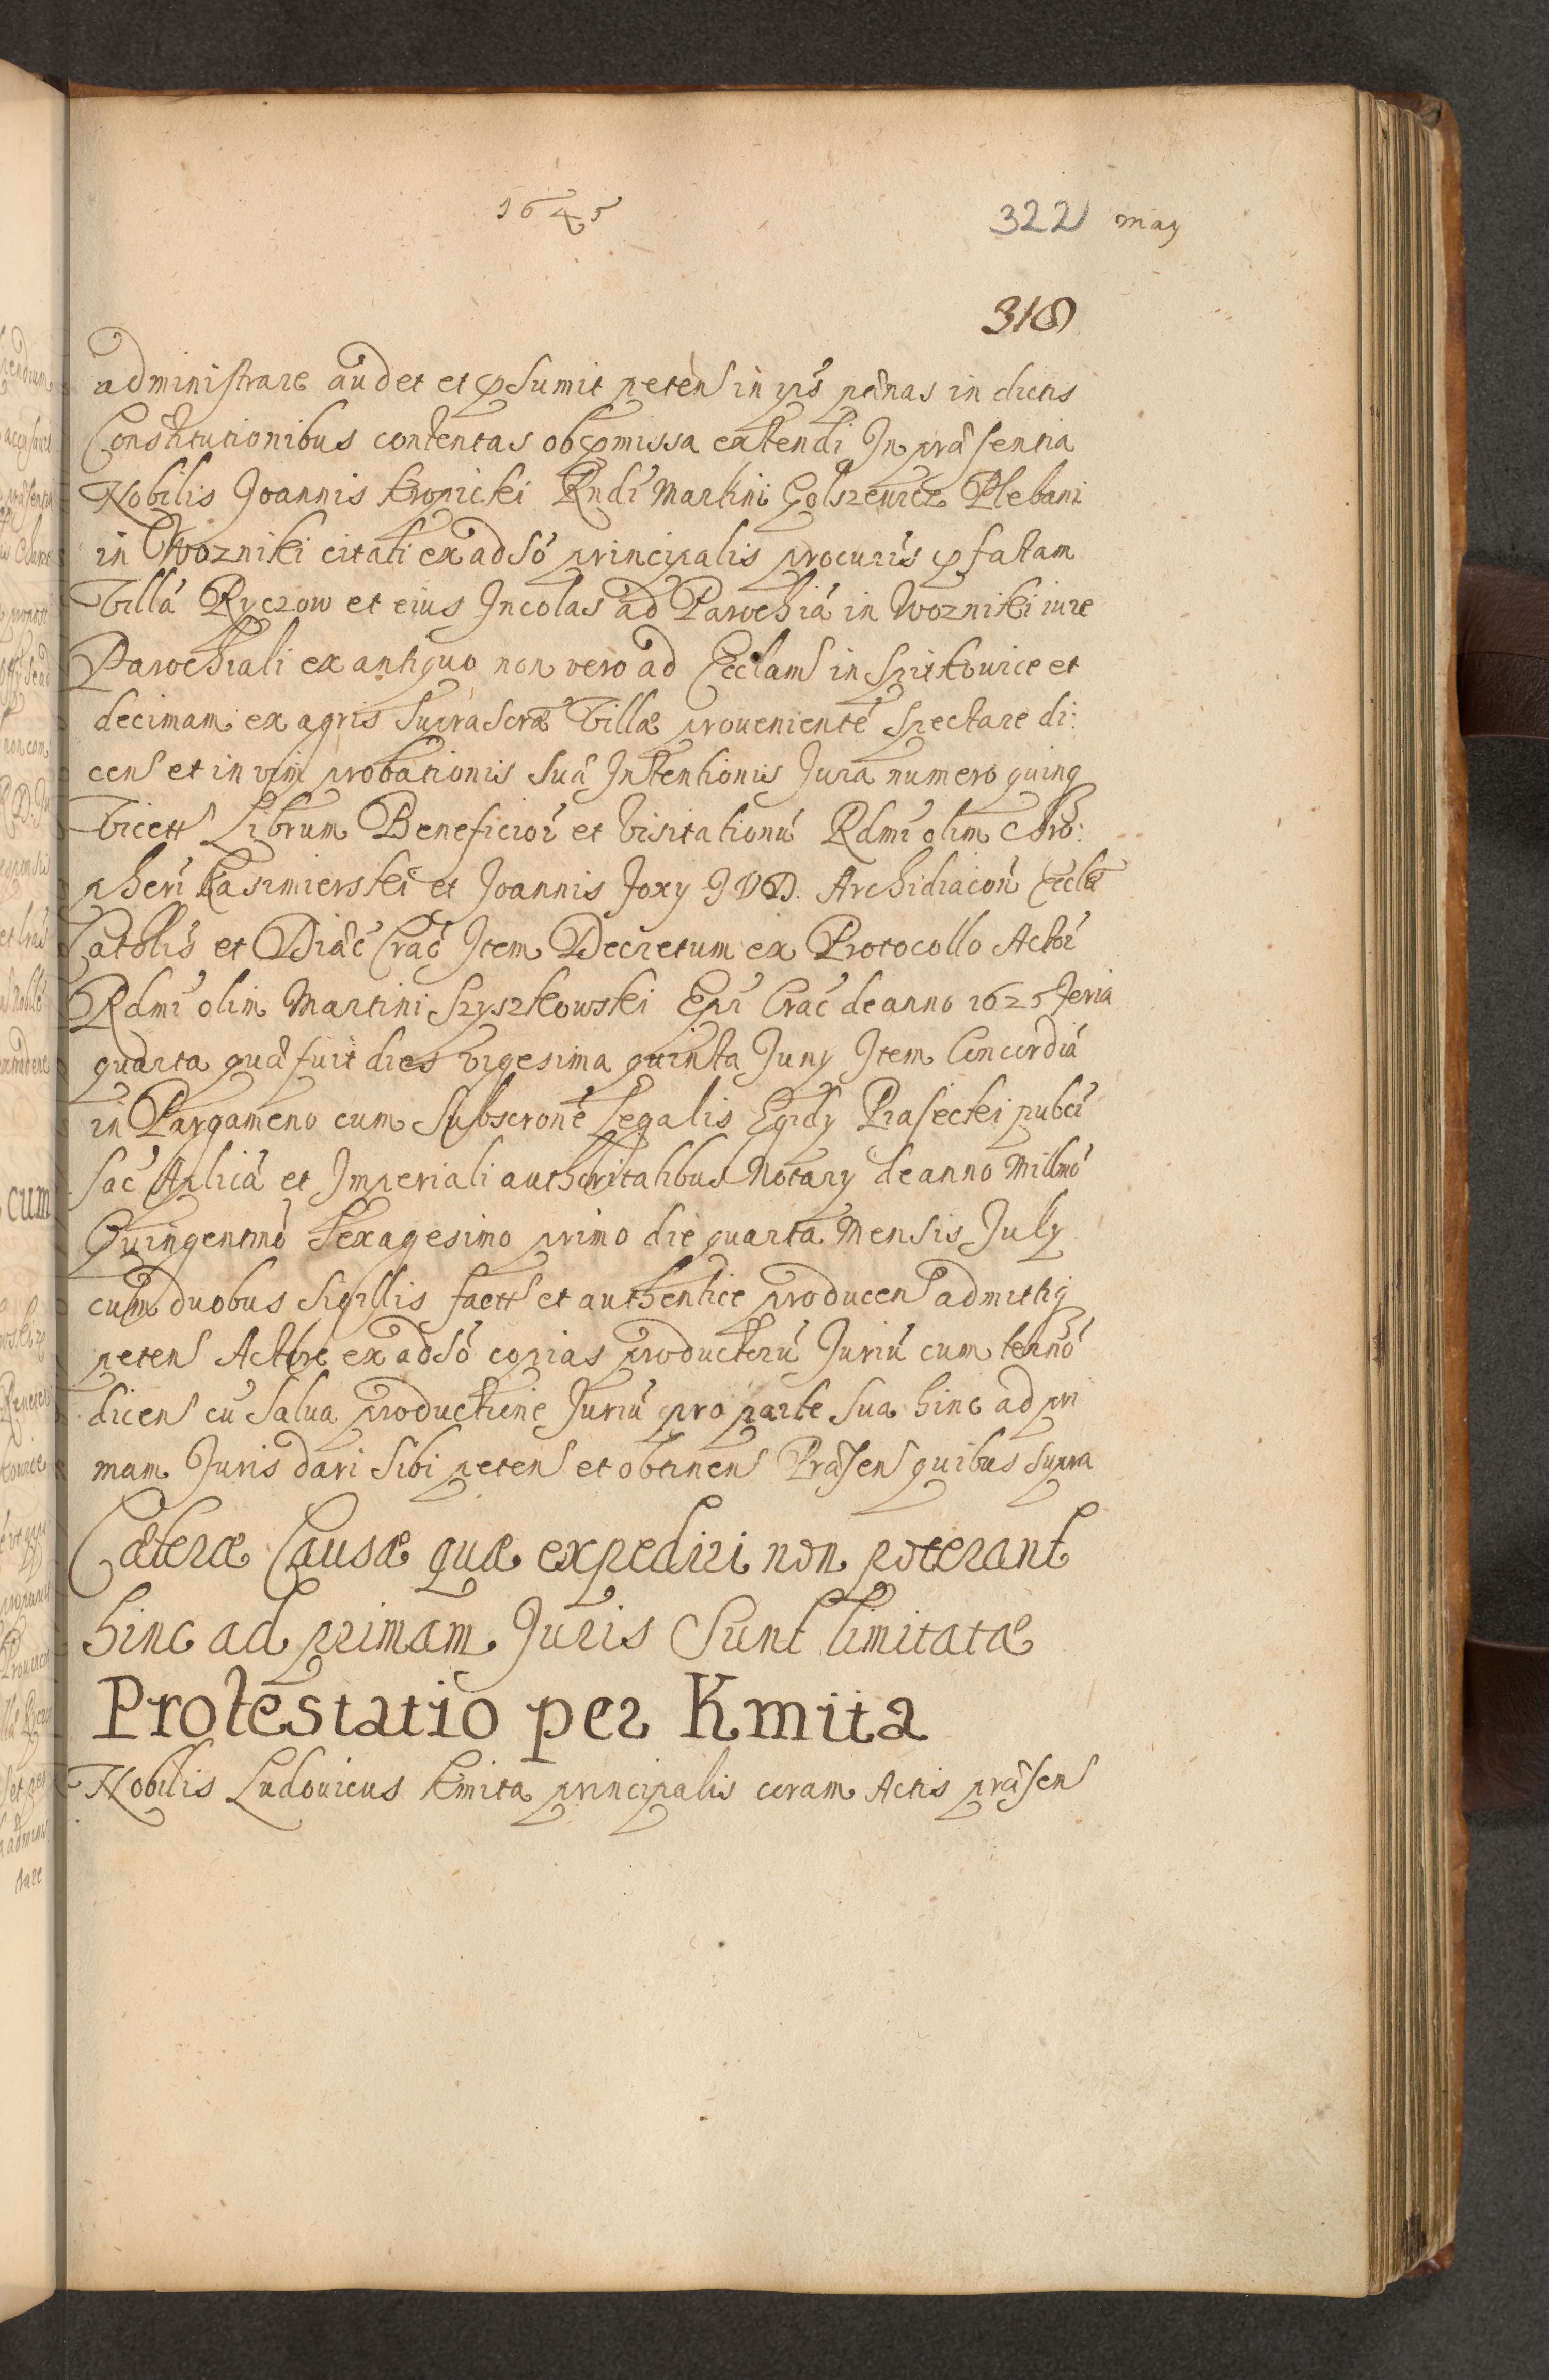 1645
322 may
318
administrare audet et p̱sumit petens in ip̃s pœ̃nas in dictis
Constitutionibus contentas ob p̱missa extendi In præsentia
Nobilis Joannis Kropicki Rndi Martini Golszewicz Plebani
in Wozniki citati ex adső principalis procuris p̱fatam
Villã Ryczow et eius Incolas ad Parochiã in Wozniki iure
Parochiali ex antiquo non vero ad Ecclam in Spitkowice et
decimam ex agris suprascræ Villæ prouenientẽ spectare di:
cens et in vim probationis suã Intentionis Jura numero quinq
Librum Beneficior̃ et Visitationũ Rdmi olim Chro:
pheri Kasimierski et Joannis Foxy JVD. Archidiacon̄ Eccłæ
Cathlis et Diæc̃ Crac̃ Item Decretum ex Protocollo Actor̃
Rdmi olim Martini Szyszkowski Ep̃i Crac̃ de anno 1625 feria
quarta quæ fuit dies vigesima quinta Juny Item Concordiã
in Pargameno cum Subscronẽ legalis Egidy Piasecki pubci
Sac̃ Aplicã et Imperiali authoritatibus Notary de anno Millmõ
Quingentmõ Sexagesimo primo die quarta Mensis July
cum duobus Sigillis et authentice producens admittiq
petens Actore ex adső copias productorũ Juriũ cum termõ
dicens cũ salua productione Juriũ pro parte sua hinc ad pri
mam Juris dari sibi petens et obtinens Præsen̄ quibus supra
Cæteræ Causæ quæ expediri non poterant
hinc ad primam Juris Sunt limitatæ
Protestatio per Kmita
Nobilis Ludouicus Kmita principalis coram Actis præsen̄